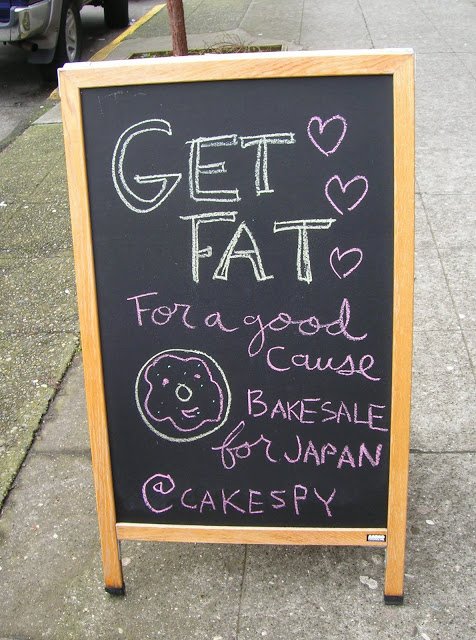 GET
FAT
For a good
cause
BAKESALE
for JAPAN
@CAKESPY